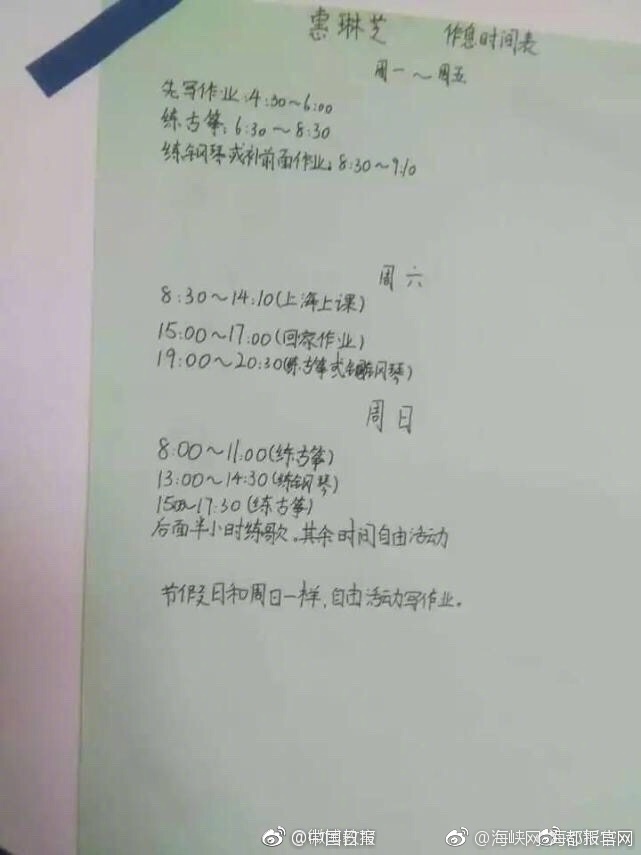 惠琳芝 作息时间表
周一～周五
先写作业:4:30～6:00
练古筝:6:30～8:30
练钢琴或补前面作业:8:30～9:10
周六
8:30～14:10(上海上课)
15:00～17:00(回家作业)
19:00～20:30(练古筝或钢琴)
周日
8:00～11:00(练古筝)
13:00～14:30(练钢琴)
15:00～17:30(练古筝)
后面半小时练歌。其余时间自由活动
节假日和周日一样,自由活动写作业。
@海峡网 海都报官网